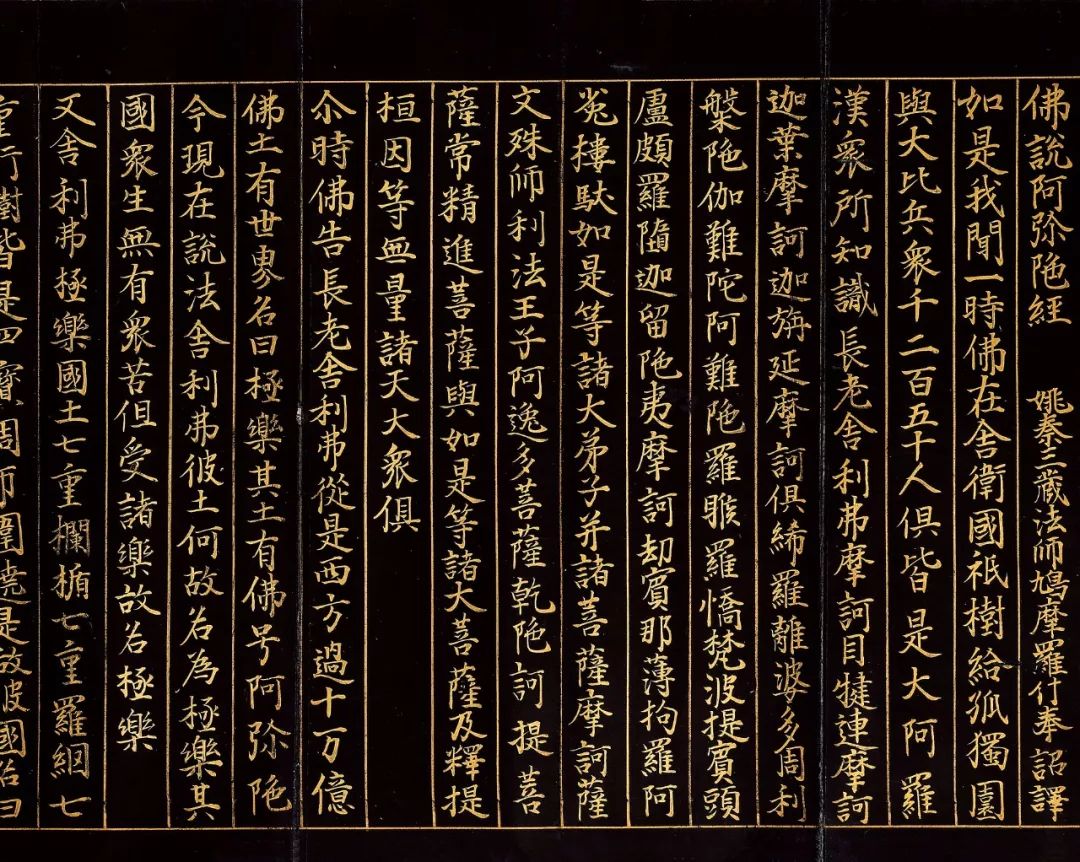 佛說阿弥陁經　姚秦三蔵法師鳩摩羅什奉詔譯
如是我聞一時佛在舍衛國祇樹給孤獨園
與大比丘衆千二百五十人俱皆是大阿羅
漢衆所知識長老舍利弗摩訶目犍連摩訶
迦葉摩訶迦旃延摩訶俱絺羅離婆多周利
槃陁伽難陀阿難陁羅睺羅憍梵波提賓頭
盧頗羅隨迦留陁夷摩訶刼賓那薄拘羅阿
㝹樓馱如是等諸大弟子并諸菩薩摩訶薩
文殊師利法王子阿逸多菩薩乾陁訶提菩
薩常精進菩薩與如是等諸大菩薩及釋提
桓因等無量諸天大衆俱
尒時佛告長老舍利弗從是西方過十万億
佛土有世界名曰極樂其土有佛号阿弥陁
今現在說法舍利弗彼土何故名為極樂其
國衆生無有衆苦但受諸樂故名極樂
又舍利弗極樂國土七重欄楯七重羅網七
重行樹皆是四寳周帀圍繞是故彼國名曰